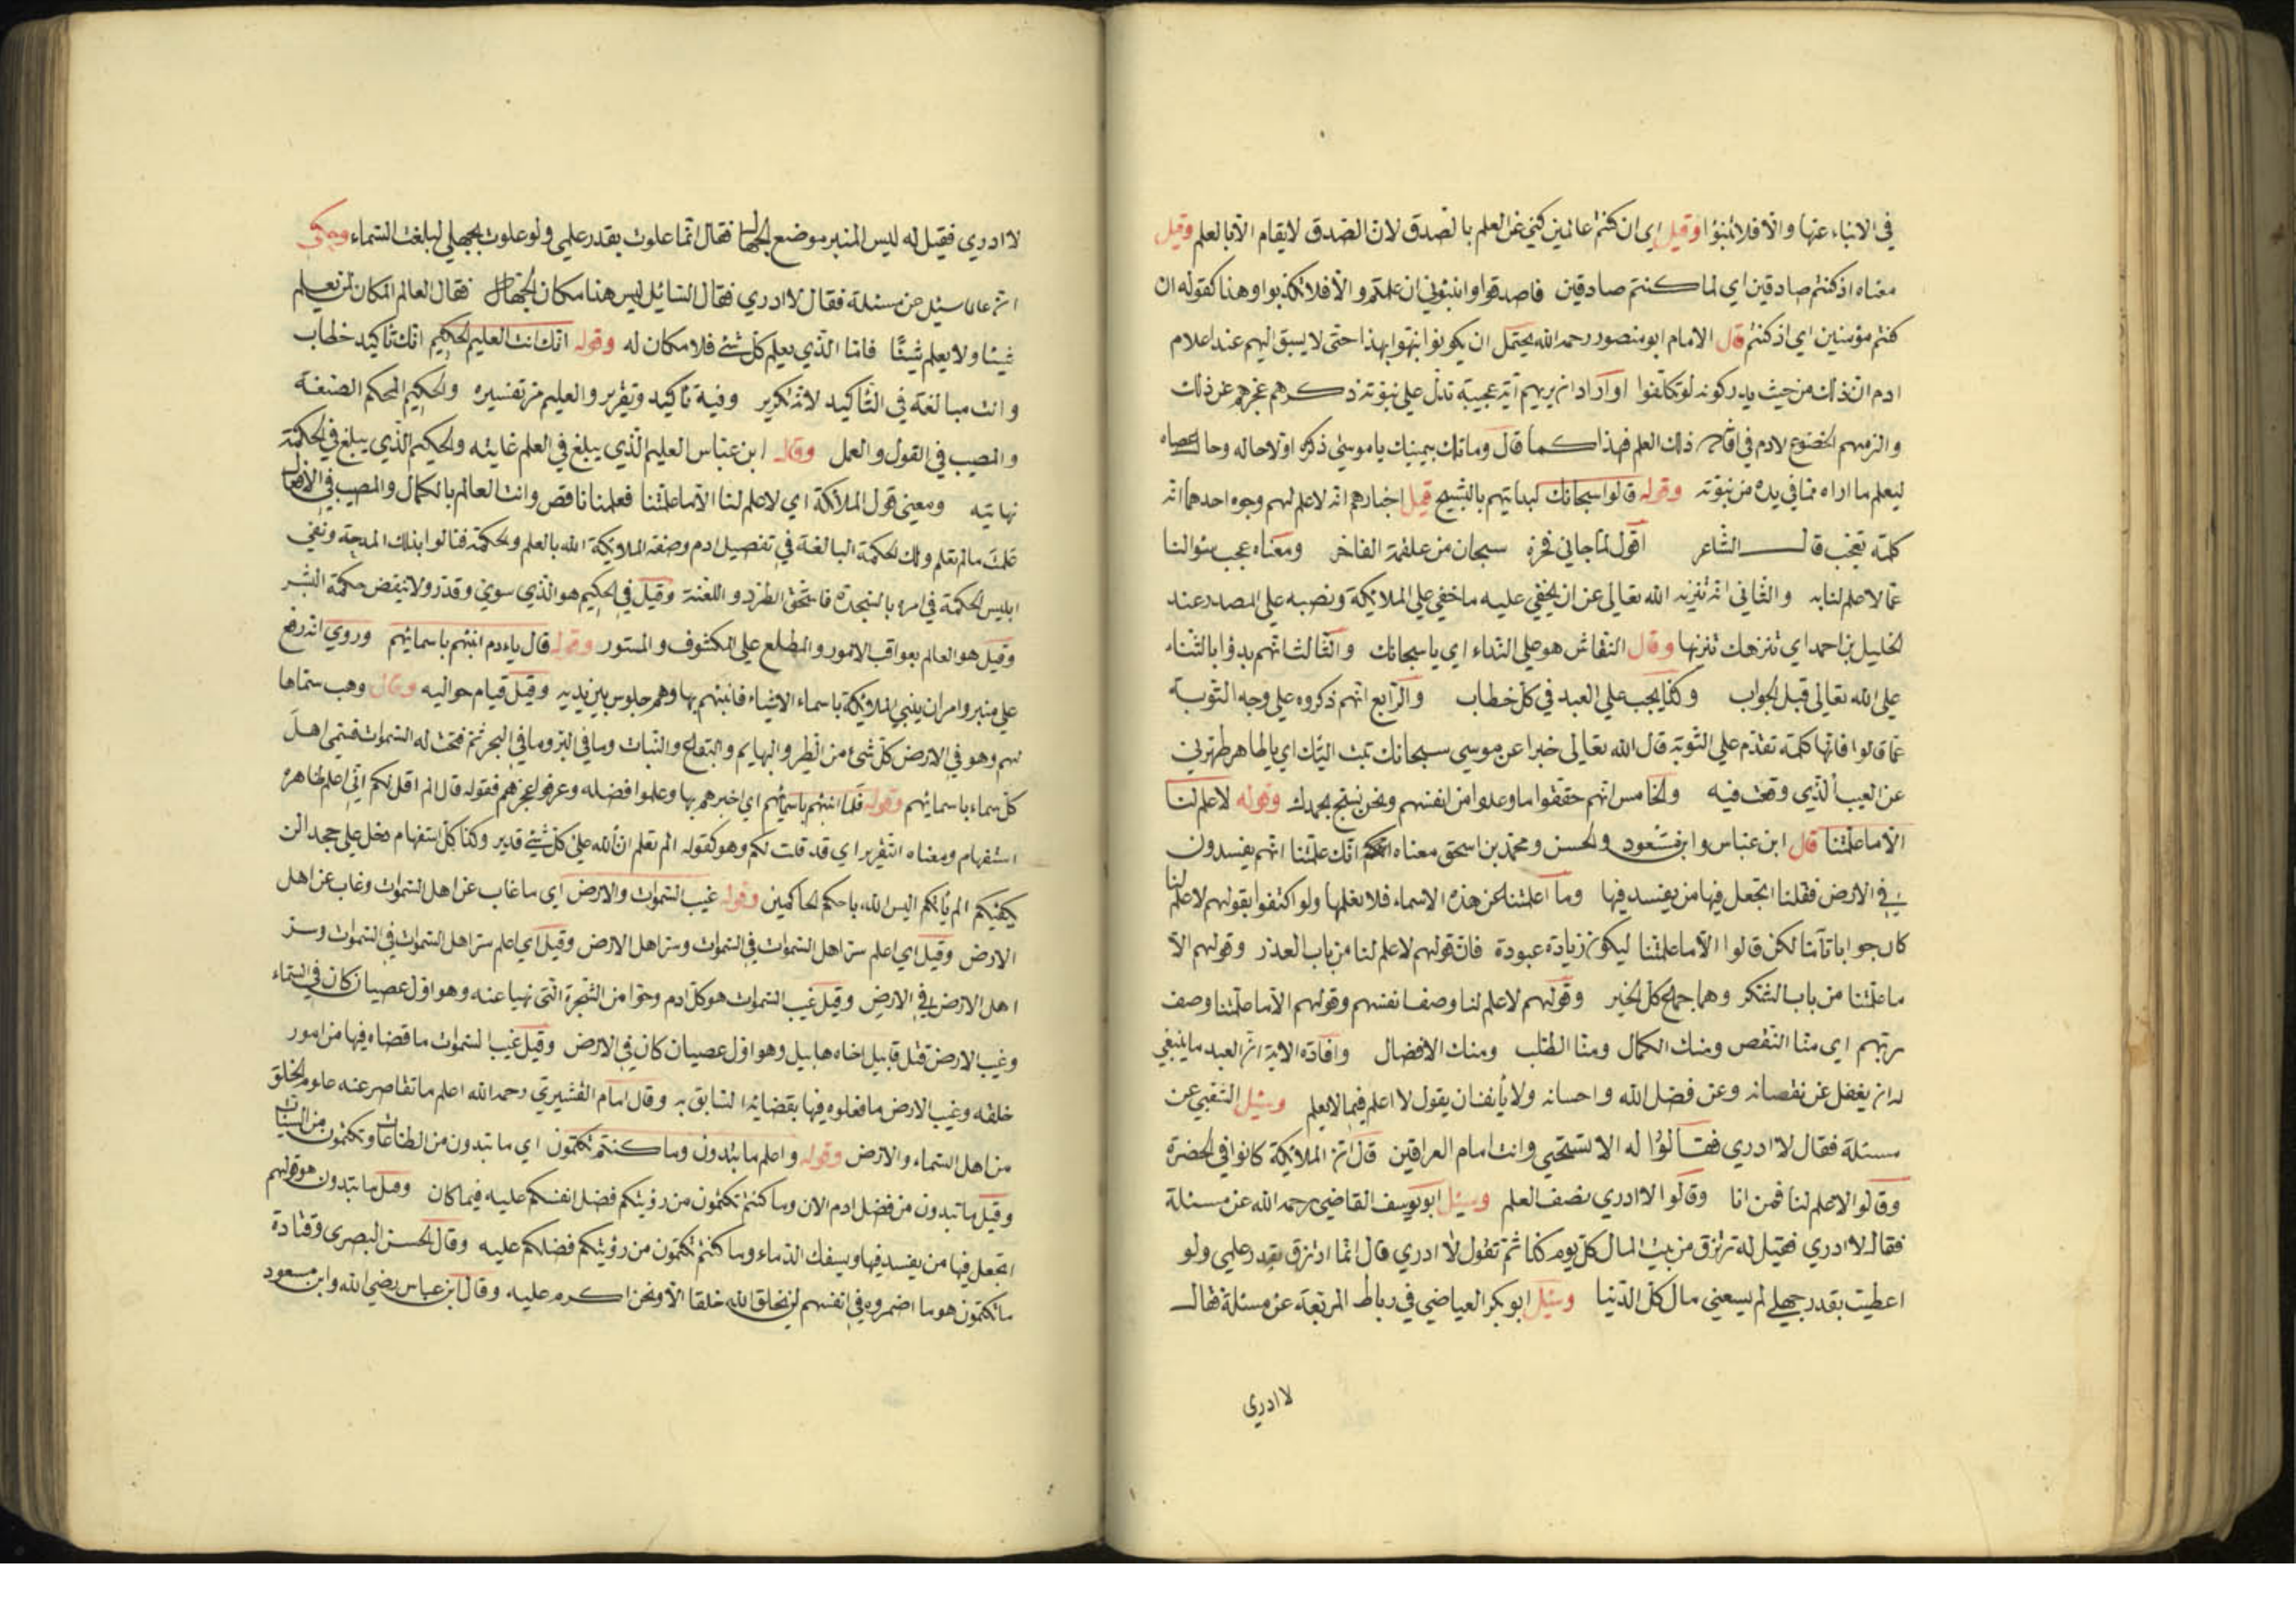 في الانباء عنها والا فلا تنبؤا وقيل اي ان كنتم عالمين كني عن العلم بالصدق لان الصدق لا يقام الا بالعلم وقيل
معناه اذ كنتم صادقين اي لما كنتم صادقين فاصدقوا وانبئوني ان علمتم والا فلا تكذبوا وهنا كقوله ان
كنتم مؤمنين اي اذ كنتم قال الامام ابو منصور رحمه الله يحتمل ان يكونوا نبهوا بهذا حتى لا يسبق اليهم عند اعلام
ادم ان ذلك من حيث يدركونه لو تكلفوا او اراد ان يريهم آية عجيبة تدل على نبوته ذكرهم عجزهم عن ذلك
والزمهم الخضوع لادم في ذلك العلم فهذا كما قال وما تلك بيمينك يا موسى ذكره اولا حاله وحال عصاه
ليعلم ما اراه مما في يده من نبوته وقوله قالوا سبحانك لبدايتهم بالتسبيح قبل اخبارهم انه لا علم لهم وجوه احدها انه
كلمة تعجب قال الشاعر اقول لما جاني فخره سبحان من علقمة الفاخر ومعناه عجب سؤالنا
عما لا علم لنا به والثاني انه تنزيه الله تعالى عن ان يخفى عليه ما خفي على الملائكة ونصبه على المصدر عند
الخليل بن احمد اي ننزهك تنزيها وقال النقاش هو على النداء اي يا سبحانك والثالث انهم بدؤا بالثناء
على الله تعالى قبل الجواب وكذا يجب على العبد في كل خطاب والرابع انهم ذكروه على وجه التوبة
عما قالوا فانها كلمة تقدم على التوبة قال الله تعالى خبرا عن موسى سبحانك تبت اليك اي يا طاهر طهرني
عن العيب الذي وقعت فيه والخامس انهم حققوا ما وعدوا من انفسهم ونحن نسبح بحمدك وقوله لا علم لنا
الا ما علمتنا قال ابن عباس وابن مسعود والحسن ومحمد بن اسحق معناه انك علمتنا انهم يفسدون
في الارض فقلنا اتجعل فيها من يفسد فيها وما اعلمتنا عن هذه الاسماء فلا نعلمها ولو اكتفوا بقولهم لا علم لنا
كان جوابا تاما لكن قالوا الا ما علمتنا ليكون زيادة عبودة فان قولهم لا علم لنا من باب العذر وقولهم الا
ما علمتنا من باب الشكر وهما جماع كل الخير وقولهم لا علم لنا وصف انفسهم وقولهم الا ما علمتنا وصف
ربهم اي منا النقص ومنك الكمال ومنا الطلب ومنك الافضال وافادة الاية ان العبد ما ينبغي
له ان يغفل عن نقصانه وعن فضل الله واحسانه ولا يأنف ان يقول لا اعلم فيما لا يعلم وسئل الشعبي عن
مسئلة فقال لا ادري فقالوا له الا تستحيي وانت امام العراقين قال ان الملائكة كانوا في الحضرة
وقالوا لا علم لنا فمن انا وقالوا لا ادري نصف العلم وسئل ابو يوسف القاضي رحمه الله عن مسئلة
فقال لا ادري فقيل له ترتزق من بيت المال كل يوم كذا ثم تقول لا ادري قال انما ارتزق بقدر علمي ولو
اعطيت بقدر جهلي لم يسعني مال كل الدنيا وسئل ابو بكر العياضي في رباط المربعة عن مسئلة فقال
لا ادري
لا ادري فقيل له ليس المنبر موضع الجهال فقال انما علوت بقدر علمي ولو علوت بجهلي لبلغت السماء وحكي
ان عالما سئل عن مسئلة فقال لا ادري فقال السائل ليس هنا مكان الجهال فقال العالم المكان لمن يعلم
شيئا ولا يعلم شيئا فاما الذي يعلم كل شئ فلا مكان له وقوله انك انت العليم الحكيم انك تاكيد خطاب
وانت مبالغة في التأكيد لانه تكرير وفيه تأكيد وتقرير والعليم مر تفسيره والحكيم المحكم الصنعة
والمصيب في القول والعمل وقال ابن عباس العليم الذي يبلغ في العلم غايته والحكيم الذي يبلغ في الحكمة
نهايته ومعنى قول الملائكة اي لا علم لنا الا ما علمتنا فعلمنا ناقص وانت العالم بالكمال والمصيب في الافعال
علمت ما لم نعلم ولك الحكمة البالغة في تفضيل ادم وصفه الملائكة الله بالعلم والحكمة فنالوا بذلك المدحة ونفي
ابليس الحكمة في امره بالسجدة فاستحق الطرد واللعنة وقيل في الحكيم هو الذي سوى وقدر ولا ينقض حكمة البشر
وقيل هو العالم بعواقب الامور والمطلع على المكشوف والمستور وقوله قال يا ادم انبئهم باسمائهم وروي انه رفع
على منبر وامر ان ينبي الملائكة باسماء الاشياء فانبئهم بها وهم جلوس بين يديه وقيل قيام حواليه وقال وهب سماها
لهم وهو في الارض كل شئ من الطير والبهايم والبقاع والنبات وما في البر وما في البحر ثم فتحت له السموات فسمى اهل
كل سماء باسمائهم وقوله فلما انبئهم باسمائهم اي اخبرهم بها وعلموا فضله وعرفوا عجزهم فقوله قال الم اقل لكم اني اعلم ظاهره
استفهام ومعناه التقرير اي قد قلت لكم وهو كقوله الم تعلم ان الله على كل شئ قدير وكذا كل استفهام دخل على جحد الن
يكفيكم الم يأتكم اليس الله باحكم الحاكمين وقوله غيب السموات والارض اي ما غاب عن اهل السموات وغاب عن اهل
الارض وقيل اي اعلم سر اهل السموات في السموات وسر اهل الارض وقيل اي اعلم سر اهل السموات في السموات وسر
اهل الارض في الارض وقيل غيب السموات هو اكل ادم وحوا من الشجرة التي نهيا عنه وهو اول عصيان كان في السماء
وغيب الارض قتل قابيل اخاه هابيل وهو اول عصيان كان في الارض وقيل غيب السموات ما قضاه فيها من امور
خلقه وغيب الارض ما فعلوه فيها بقضائه السابق به وقال امام القشيري رحمه الله اعلم ما تقاصر عنه علوم الخلق
من اهل السماء والارض وقوله واعلم ما تبدون وما كنتم تكتمون اي ما تبدون من الطاعات وتكتمون من السيئات
وقيل ما تبدون من فضل ادم الان وما كنتم تكتمون من رؤيتكم فضل انفسكم عليه فيما كان وقيل ما تبدون هو قولهم
اتجعل فيها من يفسد فيها ويسفك الدماء وما كنتم تكتمون من رؤيتكم فضلكم عليه وقال الحسن البصرى وقتادة
ما تكتمون هو ما اضمروه في انفسهم لن يخلق الله خلقا الا ونحن اكرم عليه وقال ابن عباس رضي الله وابن مسعود